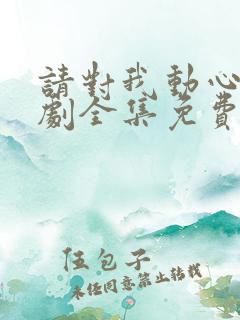 請對我動心
劇全集免費
伍包子
未经同意禁止转载